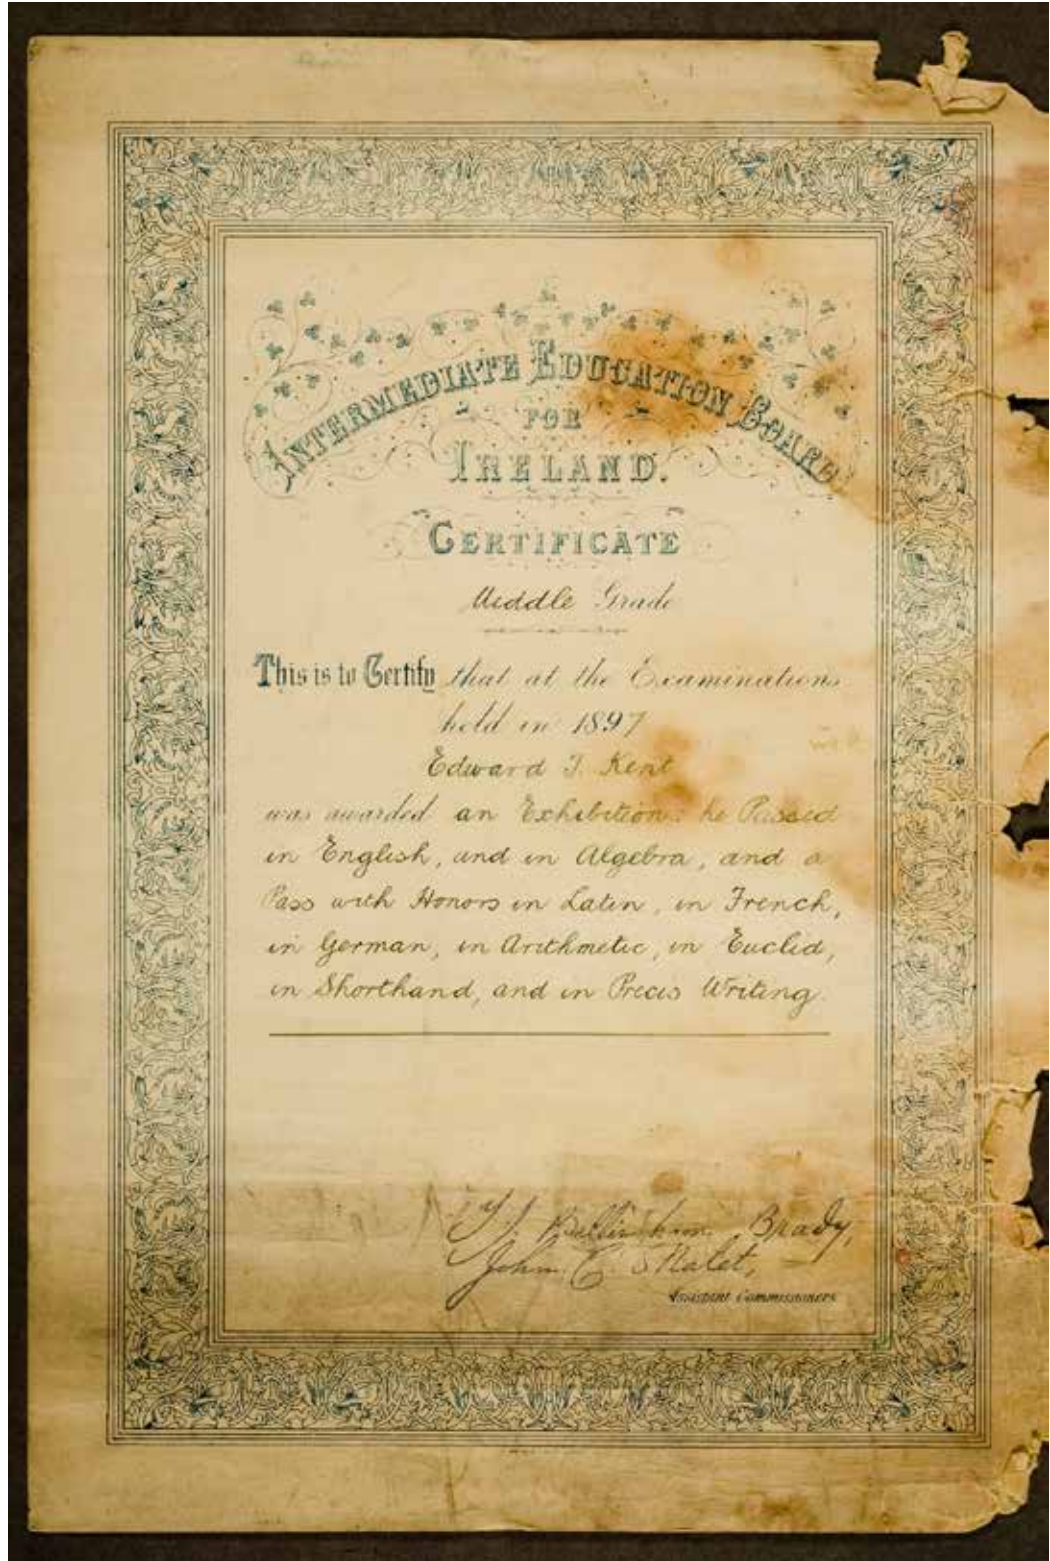 INTERMEDIATE EDUCATION BOARD
FOR
IRELAND.
CERTIFICATE
Middle Grade
This is to Certify that at the Examinations
held in 1897
Edward T. Kent
was awarded an Exhibition: he Passed
in English, and in Algebra, and a
Pass with Honors in Latin, in French,
in German, in Arithmetic, in Euclid,
in Shorthand, and in Precis Writing.
T. J. Bellingham Brady,
John C. Malet,
Assistant Commissioners